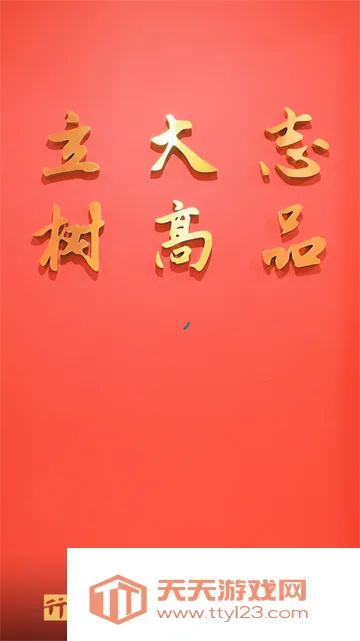 立大志
树高品
天天游戏网
www.ttyl23.com